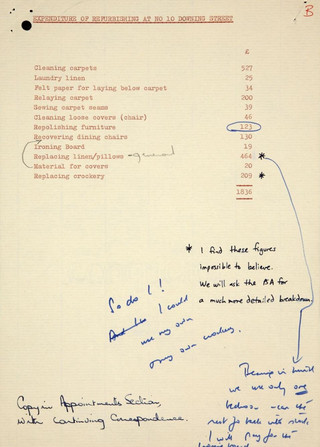 B
EXPENDITURE OF REFURBISHING AT NO 10 DOWNING STREET
£
Cleaning carpets 527
Laundry linen 25
Felt paper for laying below carpet 34
Relaying carpet 200
Sewing carpet seams 39
Cleaning loose covers (chair) 46
Repolishing furniture 123
Recovering dining chairs 130
Ironing Board 19
Replacing linen/pillows 464 *
Material for covers 20
Replacing crockery 209 *
1836
* I find these figures
impossible to believe.
We will ask the PSA for
a much more detailed breakdown.
So do I!
I could
use my own
my own crockery.
we use only one
bedroom - can the
rest go back into
I will pay for the
Copy in Appointments Section,
with Continuing Correspondence.